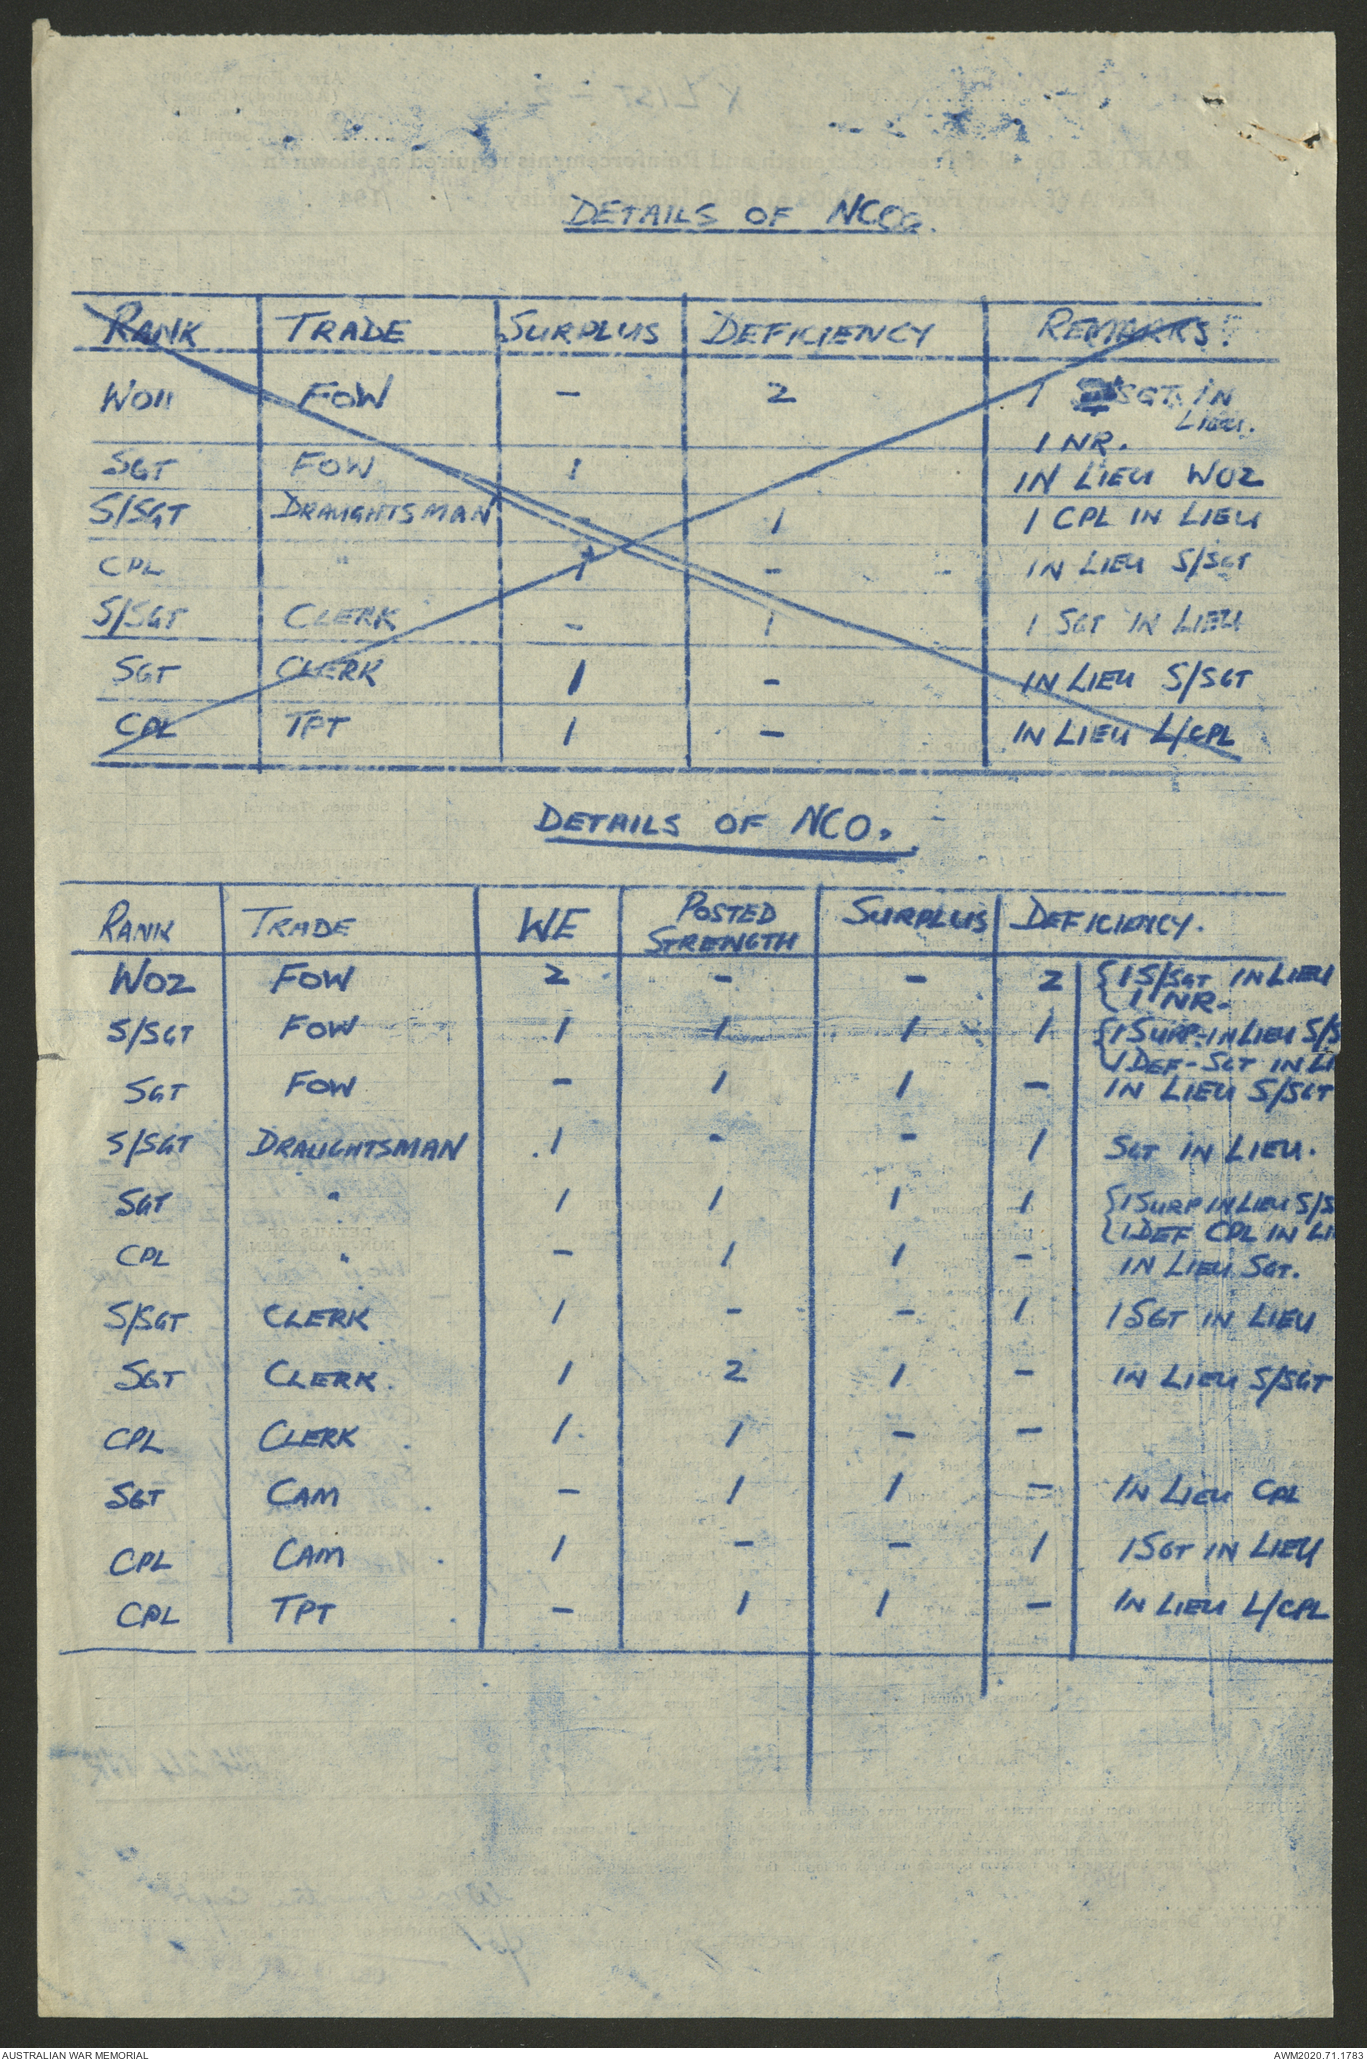 DETAILS OF NCOS.
RANK TRADE SURPLUS DEFICIENCY REMARKS.
WOII FOW - 2 1 SGT IN
LIEU.
1 NR.
SGT FOW 1 IN LIEU WO2
S/SGT DRAUGHTSMAN - 1 1 CPL IN LIEU
CPL " 1 - IN LIEU S/SGT
S/SGT CLERK - 1 1 SGT IN LIEU
SGT CLERK 1 - IN LIEU S/SGT
CPL TPT 1 - IN LIEU L/CPL
DETAILS OF NCO.
RANK TRADE WE POSTED STRENGTH SURPLUS DEFICIENCY.
WO2 FOW 2 - - 2 { 1 S/SGT IN LIEU
1 NR.
S/SGT FOW 1 1 1 1 { 1 SURP-IN LIEU S/S
1 DEF - SGT IN LI
SGT FOW - 1 1 - IN LIEU S/SGT
S/SGT DRAUGHTSMAN 1 - - 1 SGT IN LIEU.
SGT " 1 1 1 1 { 1 SURP IN LIEU S/S
1 DEF CPL IN LI
CPL " - 1 1 - IN LIEU SGT.
S/SGT CLERK 1 - - 1 1 SGT IN LIEU
SGT CLERK 1 2 1 - IN LIEU S/SGT
CPL CLERK 1 1 - -
SGT CAM - 1 1 - IN LIEU CPL
CPL CAM 1 - - 1 1 SGT IN LIEU
CPL TPT - 1 1 - IN LIEU L/CPL
AUSTRALIAN WAR MEMORIAL AWM2020.71.1783